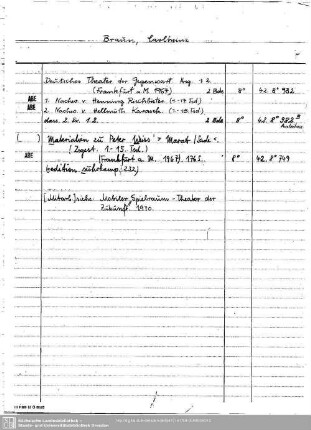 Braun, Karlheinz
Deutsches Theater der Gegenwart. Hrsg. 1.2.
(Frankfurt a. M. 1967) 2 Bde 8° 42. 8° 982
ABE 1. Nachw. v. Henning Rischbieter. (1.-17. Tsd.)
ABE 2. Nachw. v. Hellmuth Karasek. (1.-15. Tsd.)
dass. 2. Ex. 1.2. 2 Bde 8° 42. 8°
( ) Materialien zu Peter Weiss' » Marat / Sade «.
ABE (Zsgest. 1.-15. Tsd.)
(Frankfurt a. M. 1967). 176 S. 8° 42. 8° 749
(edition suhrkamp. 232)
[Mitarb.] siehe: Mobiler Spielraum - Theater der
Zukunft. 1970.
Sächsische Landesbibliothek -
Staats- und Universitätsbibliothek Dresden